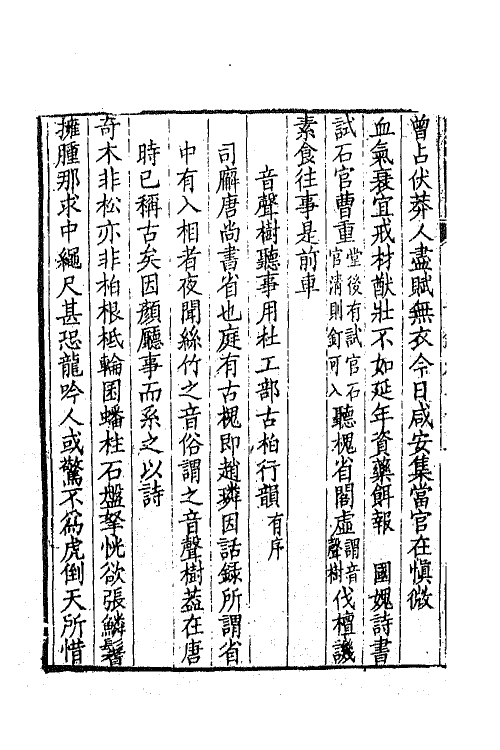 曾占伏莽人盡賦無衣今日咸安集當官在慎微
血氣衰宜戒材猷壯不如延年資藥餌報　國媿詩書
試石官曹重堂後有試官石官清則釘可入聽槐省閣虛謂音聲樹伐檀譏
素食往事是前車
音聲樹聽事用杜工部古柏行韻有序
司廨唐尚書省也庭有古槐即趙璘因話録所謂省
中有入相者夜聞絲竹之音俗謂之音聲樹葢在唐
時已稱古矣因顏廳事而系之以詩
奇木非松亦非柏根柢輪囷蟠柱石盤拏恍欲張鱗鬐
擁腫那求中繩尺甚恐龍吟人或驚不爲虎倒天所惜